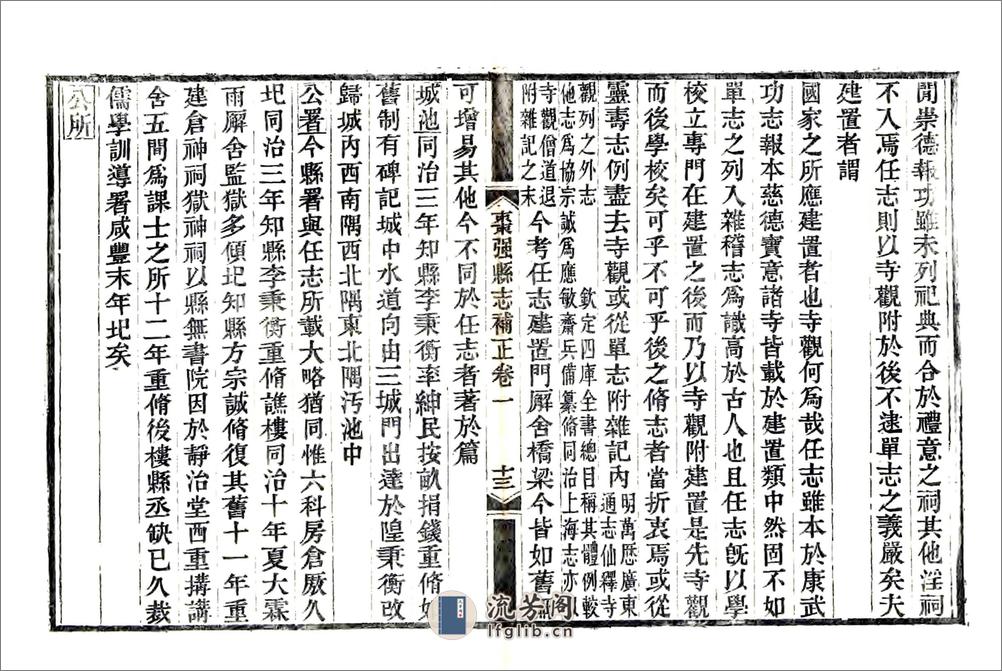 開崇德報功雖未列祀典而合於禮意之祠其他淫祠
不入焉任志則以寺觀附於後不逮單志之義嚴矣夫
建置者謂
國家之所應建置者也寺觀何爲哉任志雖本於康武
功志報本慈德寶意諸寺皆載於建置類中然固不如
單志之列入雜稽志爲識高於古人也且任志旣以學
校立專門在建置之後而乃以寺觀附建置是先寺觀
而後學校矣可乎不可乎後之脩志者當折衷焉或從
靈壽志例盡去寺觀或從單志附雜記內
明萬歷廣東
通志仙釋寺
觀列之外志
欽定四庫全書總目稱其體例較
他志爲協宗誠爲應敏齋兵備纂脩同治上海志亦以
寺觀僧道退
附雜記之末
今考任志建置門廨舍橋梁今皆如舊無
棗强縣志補正卷一
十三
可增易其他今不同於任志者著於篇
城池同治三年知縣李秉衡率紳民按畝捐錢重脩如
舊制有碑記城中水道向由三城門出達於隍秉衡改
歸城內西南隅西北隅東北隅汚池中
公署今縣署與任志所載大略猶同惟六科房倉廒久
圮同治三年知縣李秉衡重脩譙樓同治十年夏大霖
雨廨舍監獄多傾圮知縣方宗誠脩復其舊十一年重
建倉神祠獄神祠以縣無書院因於靜治堂西重搆講
舍五間爲課士之所十二年重脩後樓縣丞缺已久裁
儒學訓導署咸豐末年圮矣
公所
流芳阁
lfglib.cn